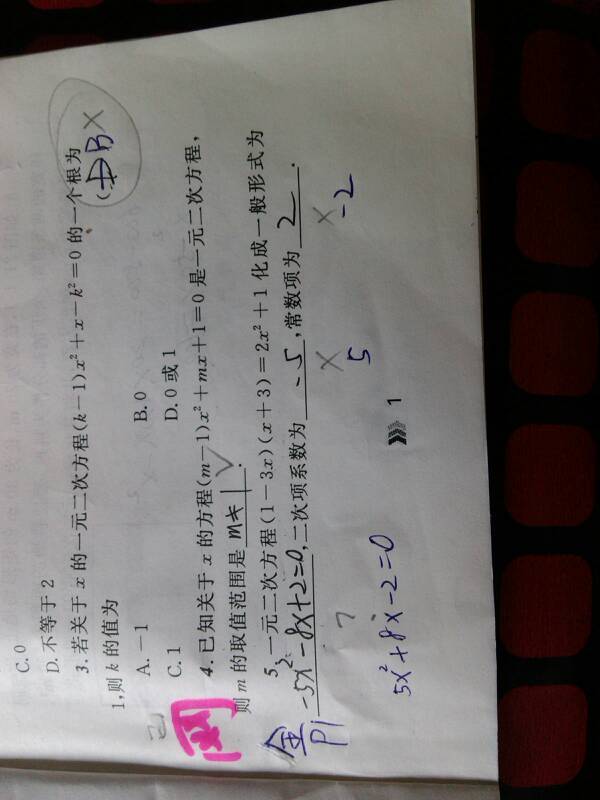 C. 0
D. 不等于 2
3. 若关于 x 的一元二次方程(k-1)x²+x-k²=0 的一个根为
1,则 k 的值为 (D B ×
A. -1 B. 0
C. 1 D. 0 或 1
4. 已知关于 x 的方程(m-1)x²+mx+1=0 是一元二次方程,
则 m 的取值范围是 m≠1 .
5. 一元二次方程(1-3x)(x+3)=2x²+1 化成一般形式为
-5x²-8x+2=0,二次项系数为 -5 ,常数项为 2 .
× ×
5x²+8x-2=0 5 -2
1